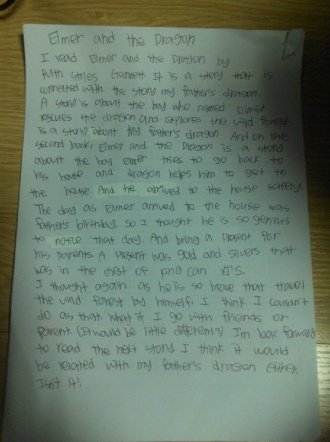 Elmer and the Dragon
I read Elmer and the Dragon by
Ruth Stiles Gannett It is a story that is
connected with the story my father's dragon.
A story is about the boy who named Elmer
rescues the dragon and explores the wild forest
is a story about My father's dragon. And on the
second book, Elmer and the Dragon is a story
about the boy Elmer tries to go back to
his house and dragon helps him to get to
the house. And he arrived to the house safely.
The day as Elmer arrived to the house was
father's birthday. So I thought he is so genius
to notice that day. And bring a present for
his parents. A present was gold and silvers that
was in the chest of king can XI's.
I thought again as he is so brave that travel
the wild forest by himself. I think I couldn't
do as that. What if I go with friends or
parent (It would be little different?) I'm look forward
to read the next story I think it would
be related with my father's dragon either.
Isn't it?